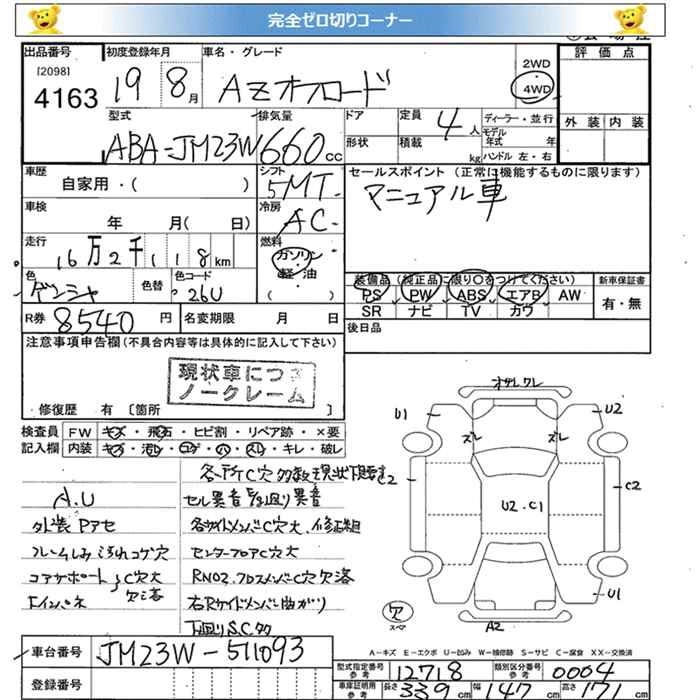 完全ゼロ切りコーナー
出品番号 初度登録年月 車名・グレード 評価点
[2098] 4163 19 8月 AZオフロード 2WD・4WD
外装 内装
型式 排気量 ドア 定員 ディーラー・並行
ABA-JM23W 660cc 4人 モデル年式 年
形状 積載 kg ハンドル 左・右
車歴 シフト セールスポイント (正常に機能するものに限ります)
自家用・( ) 5MT マニュアル車
車検 冷房
年 月( 日) AC
走行 燃料
16万2千118km ガソリン・軽油・( )
色 色替 色コード 装備品 (純正品に限り○をつけてください) 新車保証書
ゲンシャ 26U PS PW ABS エアB AW 有・無
SR ナビ TV カワ
R券 8540円 名変期限 月 日 後日品
注意事項申告欄(不具合内容等は具体的に記入して下さい)
現状車につき
ノークレーム
修復歴 有 [箇所 ]
検査員 FW キズ・飛石・ヒビ割・リペア跡・×要
記入欄 内装 キズ・汚レ・コゲ・穴・スレ・キレ・破レ
各所C穴多数現状下廻
A.U セル異音 異音
外装Pアセ 各サイドメンバC穴大、修正組
センターフロアC穴大
コアサポート C穴大
欠落
RNO2.クロスメンバC穴欠落
右Rサイドメンバ曲がり
下廻りS.C多
オサレクレ
U1 ズレ ズレ U2
C2
U2.C1
U1
欠 スペア
A2
A-キズ E-エクボ U-凹み W-補修跡 S-サビ C-腐食 XX-交換済
車台番号 JM23W-511093
登録番号
型式指定番号 参考 12718 類別区分番号 参考 0004
車庫証明用 参考 長さ 339cm 幅 147cm 高さ 171cm